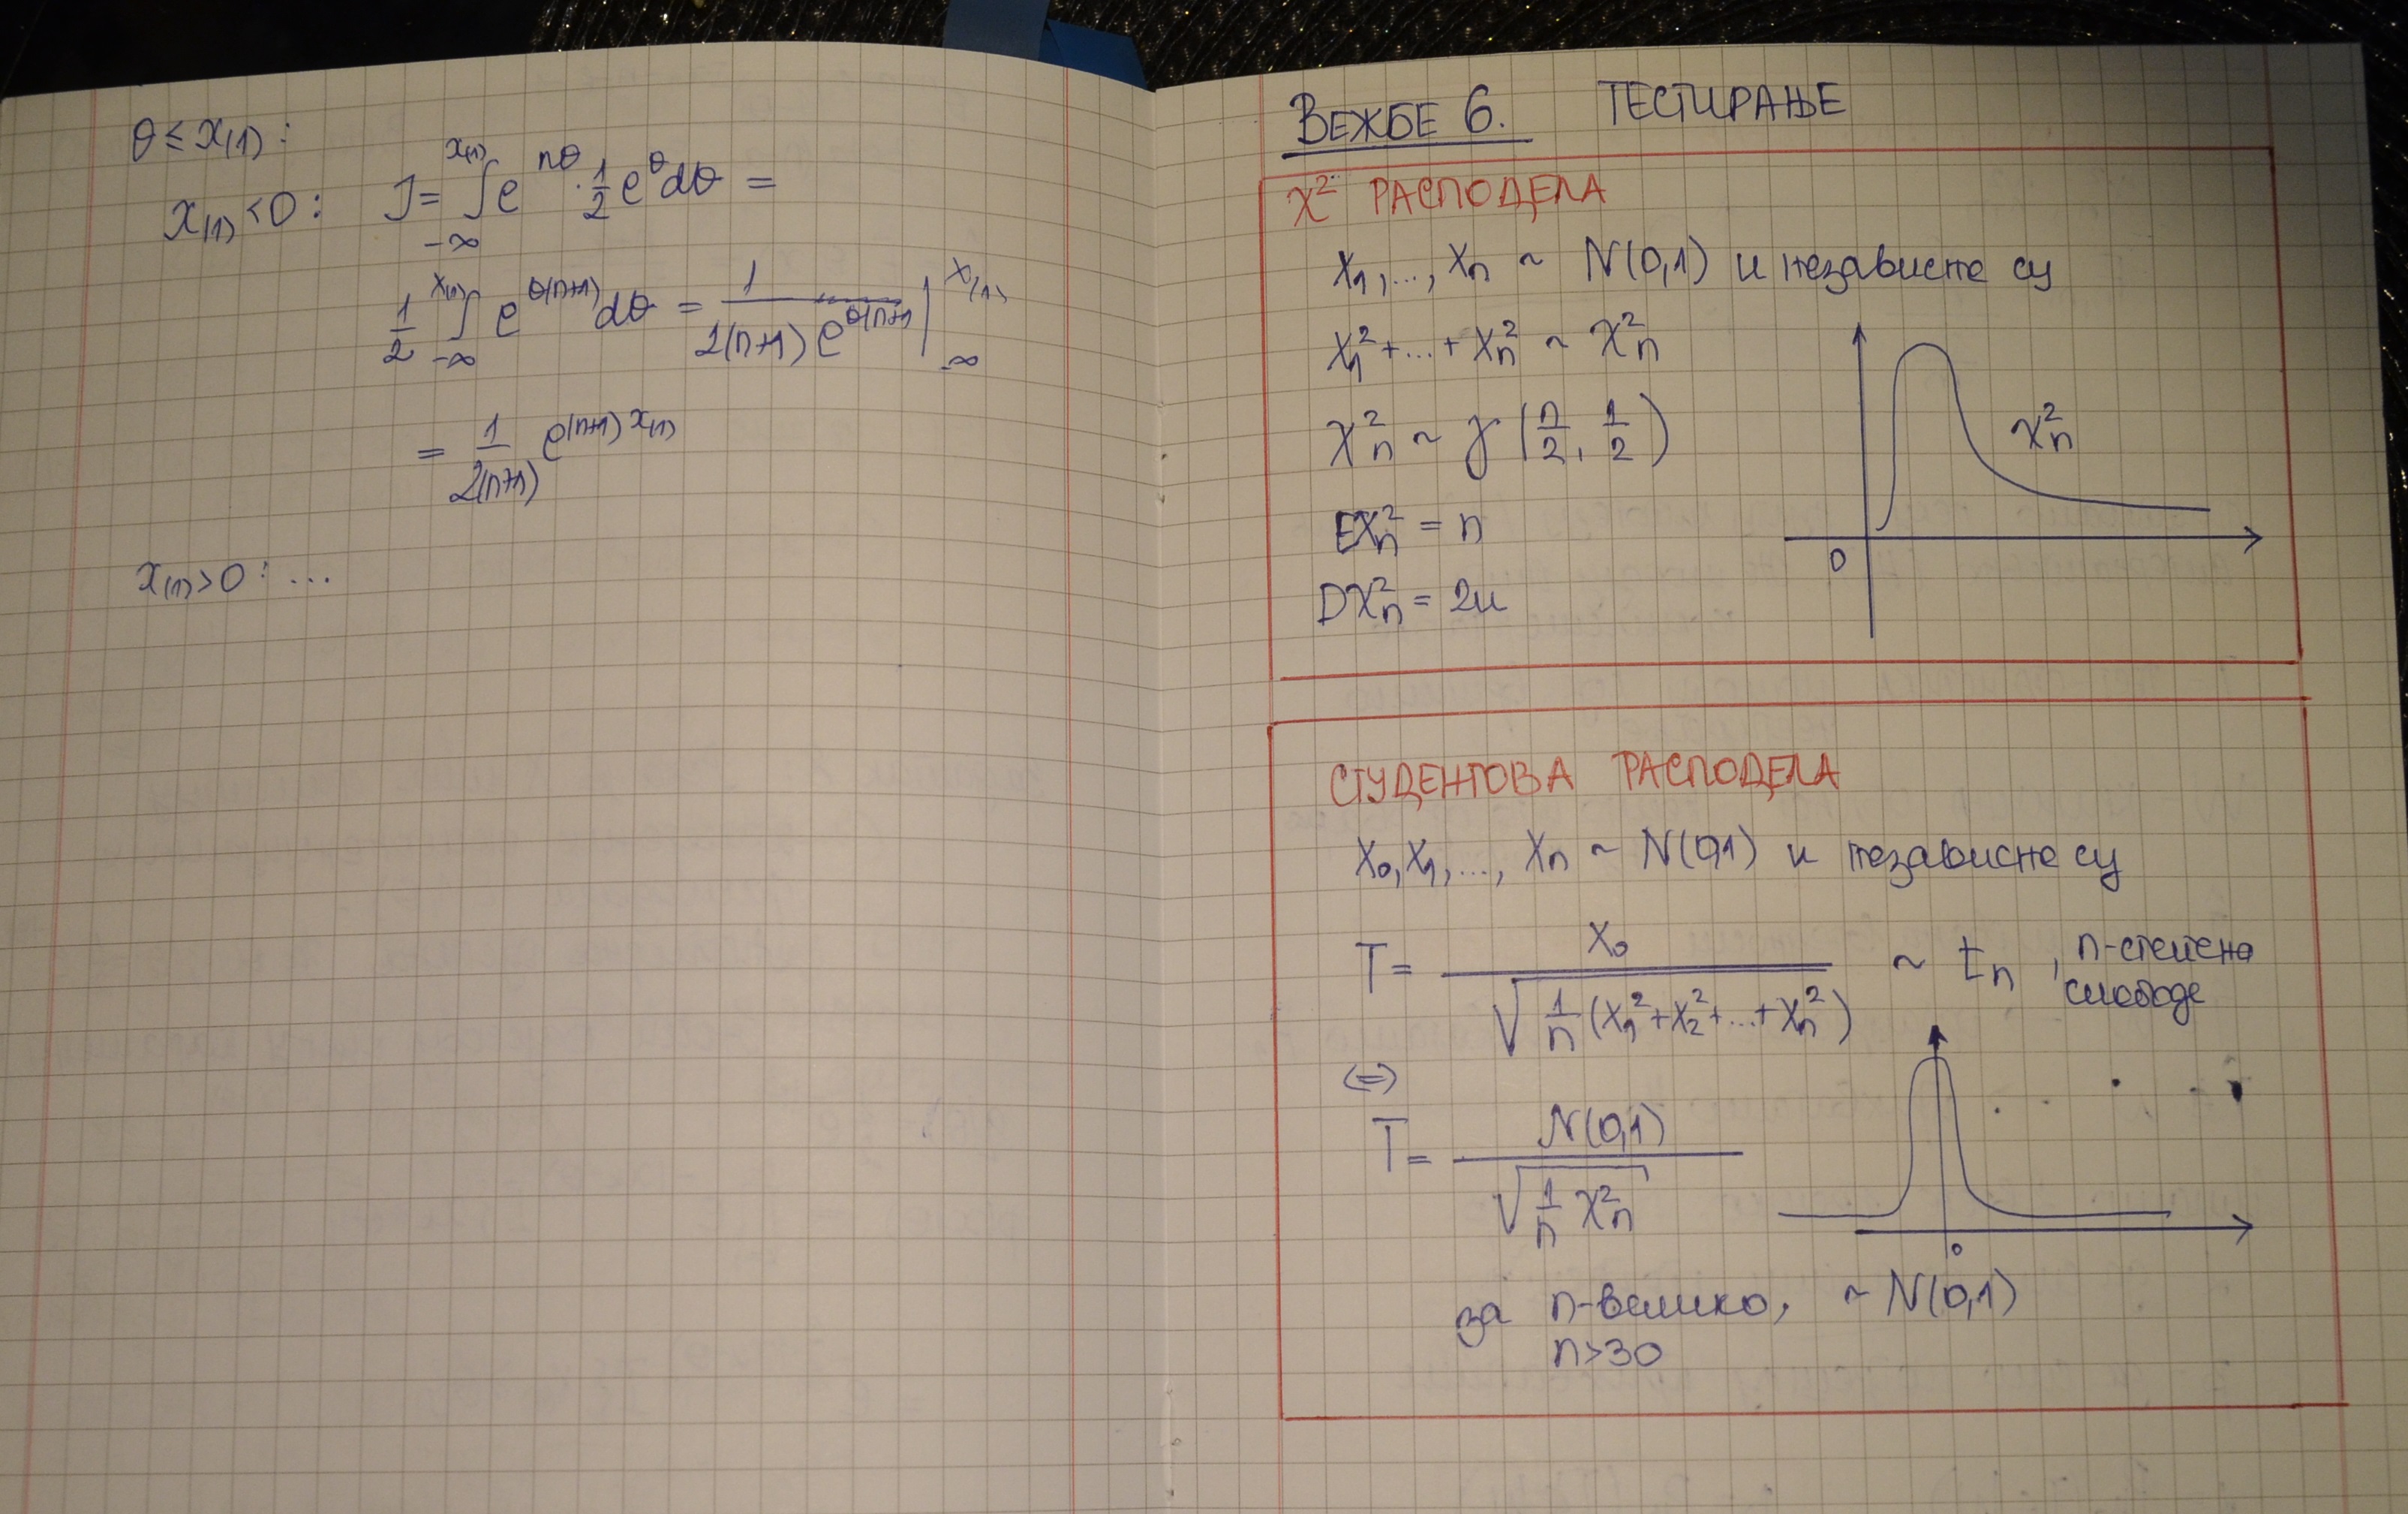 θ ≤ x₍₁₎ :
x₍₁₎ < 0 : J = ∫_{-∞}^{x₍₁₎} e^{nθ} · 1/2 e^θ dθ =
1/2 ∫_{-∞}^{x₍₁₎} e^{θ(n+1)} dθ = 1/(2(n+1) e^{θ(n+1)}) |_{-∞}^{x₍₁₎}
= 1/(2(n+1)) e^{(n+1)x₍₁₎}
x₍₁₎ > 0 : ...
ВЕЖБЕ 6. ТЕСТИРАЊЕ
χ² РАСПОДЕЛА
X₁,..., Xₙ ~ N(0,1) и независне су
X₁² + ... + Xₙ² ~ χₙ²
χₙ² ~ γ(n/2, 1/2)
Eχₙ² = n
Dχₙ² = 2n
χₙ²
0
СТУДЕНТОВА РАСПОДЕЛА
X₀, X₁, ..., Xₙ ~ N(0,1) и независне су
T = X₀ / √(1/n (X₁² + X₂² + ... + Xₙ²)) ~ tₙ , n-степена
слободе
⇔
T = N(0,1) / √(1/n χₙ²)
0
за n-велико, ~ N(0,1)
n>30